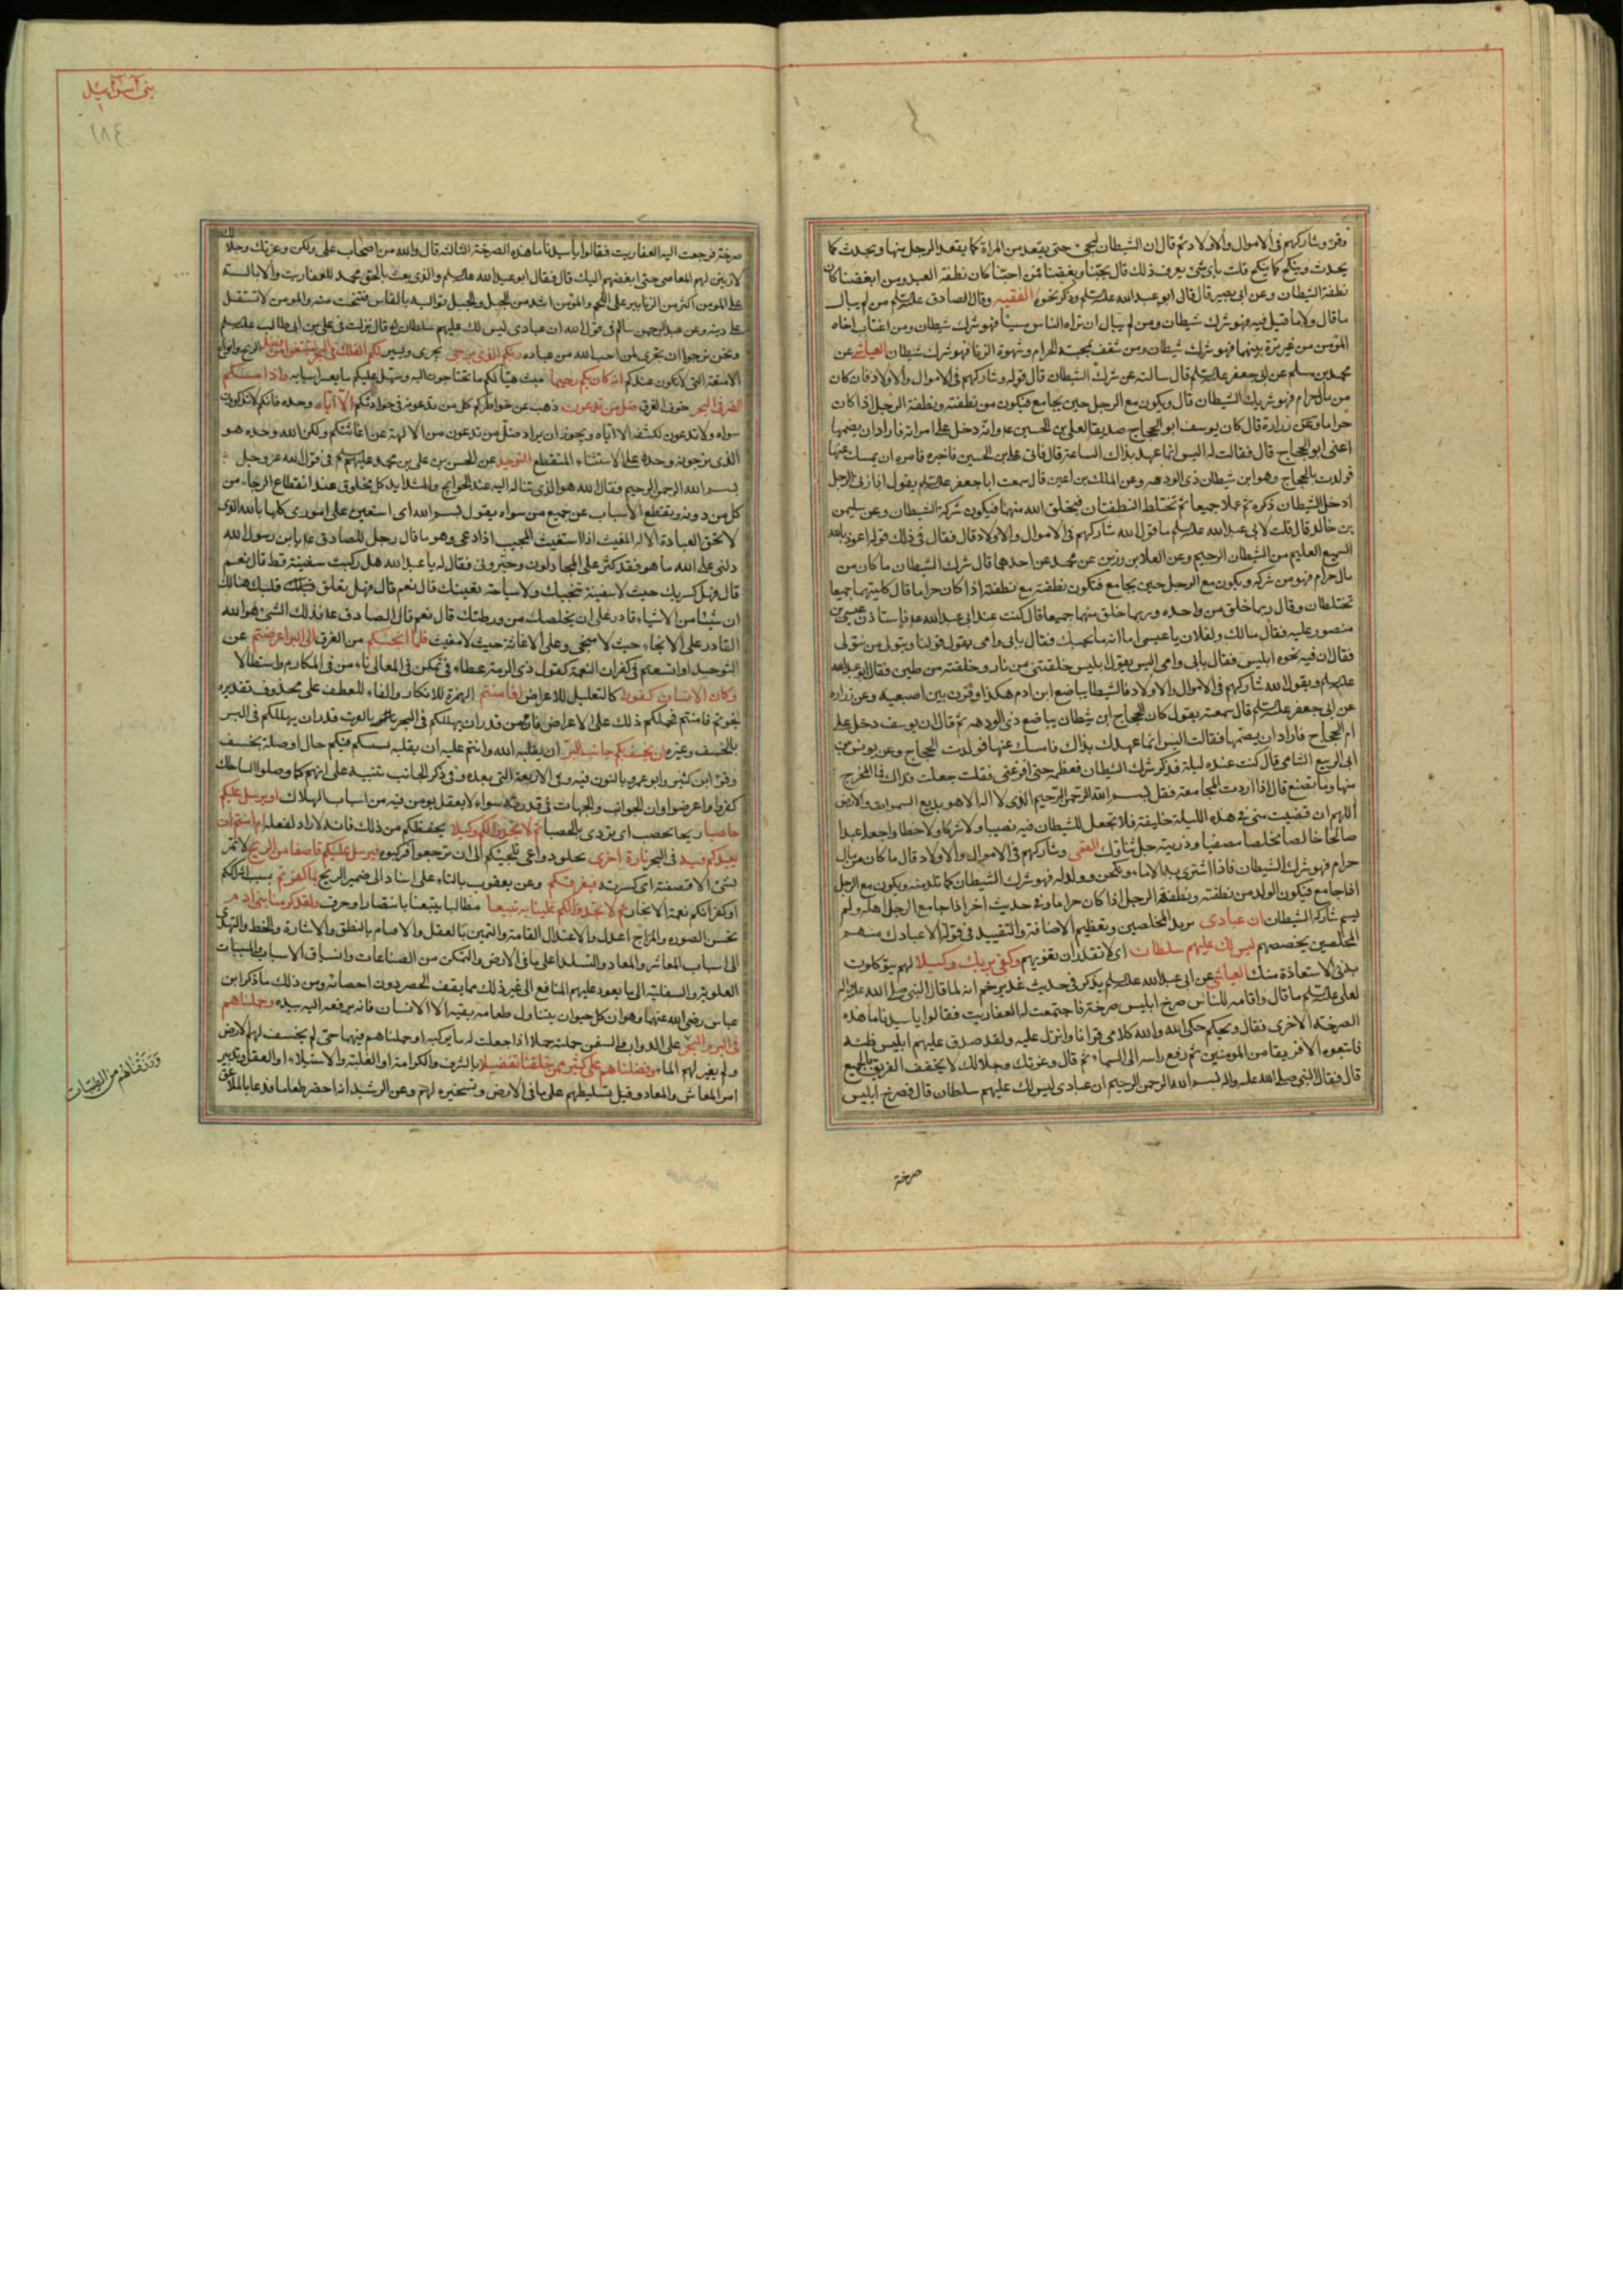 وقرء وشاركهم في الاموال والاولاد ثم قال ان الشيطان ليجيء حتى يقعد من المراة كما يقعد الرجل منها ويحدث كما
يحدث وينكح كما ينكح قلت باي شيء يعرف ذلك قال بحبنا وبغضنا فمن احبنا كان نطفة العبد ومن ابغضنا كان
نطفة الشيطان وعن ابي بصير قال قال ابو عبد الله عليه السلم وذكر نحوه الفقيه وقال الصادق عليه السلم من لم يبال
ما قال ولا ما قيل فيه فهو شرك شيطان ومن لم يبال ان تراه الناس مسيئا فهو شرك شيطان ومن اغتاب اخاه
المؤمن من غير ترة بينهما فهو شرك شيطان ومن شغف بمحبة الحرام وشهوة الزنا فهو شرك شيطان العياشي عن
محمد بن مسلم عن ابي جعفر عليه السلم قال سالته عن شرك الشيطان قال قوله وشاركهم في الاموال والاولاد فان كان
من مال حرام فهو شريك الشيطان قال ويكون مع الرجل حين يجامع فيكون من نطفته ونطفة الرجل اذا كان
حراما وعن زرارة قال كان يوسف ابو الحجاج صديقا لعلي بن الحسين ع وانه دخل على امراته فاراد ان يضمها
اعني ابو الحجاج قال فقالت له اليس انما عهدك بذاك الساعة قال فاتى علي بن الحسين فاخبره فامره ان يمسك عنها
فولدت بالحجاج وهو ابن شيطان ذي الردهه وعن الملك بن اعين قال سمعت ابا جعفر عليه السلم يقول اذا زنى الرجل
ادخل الشيطان ذكره ثم عملا جميعا ثم تختلط النطفتان فيخلق الله منهما فيكون شركة الشيطان وعن سليمن
بن خالد قال قلت لابي عبد الله عليه السلم ما قول الله شاركهم في الاموال والاولاد قال فقال في ذلك قوله اعوذ بالله
السميع العليم من الشيطان الرجيم وعن العلا بن رزين عن محمد عن احدهما قال شرك الشيطان ما كان من
مال حرام فهو من شركه ويكون مع الرجل حين يجامع فتكون نطفته مع نطفته اذا كان حراما قال كليتهما جميعا
تختلطان وقال ربما خلق من واحدة وربما خلق منهما جميعا قال كنت عند ابي عبد الله ع فاستاذن عيسى بن
منصور عليه فقال مالك ولفلان يا عيسى اما انه ما يحبك فقال بابي وامي يقول قولنا ويتولى من نتولى
فقال ان فيه نخوة ابليس فقال بابي وامي اليس يقول ابليس خلقتني من نار وخلقته من طين فقال ابو عبد الله
عليه السلم ويقول الله شاركهم في الاموال والاولاد فالشيطان يباضع ابن ادم هكذا وقرن بين اصبعيه وعن زراره
عن ابي جعفر عليه السلم قال سمعته يقول كان الحجاج ابن شيطان يباضع ذي الردهه ثم قال ان يوسف دخل على
ام الحجاج فاراد ان يضمها فقالت اليس انما عهدك بذاك فامسك عنها فولدت الحجاج وعن يونس عن
ابي الربيع الشامي قال كنت عنده ليلة فذكر شرك الشيطان فعظمه حتى افزعني فقلت جعلت فداك فما المخرج
منها وما نصنع قال اذا اردت المجامعة فقل بسم الله الرحمن الرحيم الذي لا اله الا هو بديع السموات والارض
اللهم ان قضيت مني في هذه الليلة خليفة فلا تجعل للشيطان فيه نصيبا ولا شركا ولا حظا واجعله عبدا
صالحا خالصا مخلصا مصفيا وذريته جل ثناؤك القمي وشاركهم في الاموال والاولاد قال ما كان من مال
حرام فهو شرك الشيطان فاذا اشترى به الاماء ونكحهن وولد له فهو شرك الشيطان كما تلد منه ويكون مع الرجل
اذا جامع فيكون الولد من نطفته ونطفة الرجل اذا كان حراما وفي حديث اخر اذا جامع الرجل اهله ولم
يسم شاركه الشيطان ان عبادي يريد المخلصين وتعظيم الاضافة والتقييد في قوله الا عبادك منهم
المخلصين يخصصهم ليس لك عليهم سلطان اي لا تقدر ان تغويهم وكفى بربك وكيلا لهم يتوكلون
به في الاستعاذة منك العياشي عن ابي عبد الله عليه السلم يذكر في حديث غدير خم انه لما قال النبي صلى الله عليه واله
لعلي عليه السلم ما قال واقامه للناس صرخ ابليس صرخة فاجتمعت له العفاريت فقالوا يا سيدنا ما هذه
الصرخة الاخرى فقال ويحكم حكى الله والله كلامي قرانا وانزل عليه ولقد صدق عليهم ابليس ظنه
فاتبعوه الا فريقا من المؤمنين ثم رفع راسه الى السماء ثم قال وعزتك وجلالك لالحقن الفريق بالجميع
قال فقال النبي صلى الله عليه واله بسم الله الرحمن الرحيم ان عبادي ليس لك عليهم سلطان قال فصرخ ابليس
صرخة
بني آسرآئيل
١٨٤
صرخة فرجعت اليه العفاريت فقالوا يا سيدنا ما هذه الصرخة الثالثة قال والله من اصحاب علي ولكن وعزتك وجلالك
لازينن لهم المعاصي حتى ابغضهم اليك قال فقال ابو عبد الله عليه السلم والذي بعث بالحق محمد للعفاريت والابالسة
على المؤمن اكثر من الزنابير على اللحم والمؤمن اشد من الجبل والجبل تدنو اليه بالفاس فتنحت منه والمؤمن لا تستقل
على دينه وعن عبد الرحمن سالم في قول الله ان عبادي ليس لك عليهم سلطان قال نزلت في علي بن ابي طالب عليه السلم
ونحن نرجوا ان تجري لمن احب الله من عباده ربكم الذي يزجي يجري ويسير لكم الفلك في البحر لتبتغوا من فضله الريح وانواع
الامتعة التي لا تكون عندكم انه كان بكم رحيما حيث هيأ لكم ما تحتاجون اليه وسهل عليكم ما يعسر اسبابه واذا مسكم
الضر في البحر خوف الغرق ضل من تدعون ذهب عن خواطركم كل من تدعونه في حوادثكم الا اياه وحده فانكم لا تذكرون
سواه ولا تدعون لكشفه الا اياه ويجوز ان يراد ضل من تدعون من الالهة عن اغاثتكم ولكن الله وحده هو
الذي ترجونه وحده على الاستثناء المنقطع التوحيد عن الحسن بن علي بن محمد عليهم السلم في قول الله عز وجل
بسم الله الرحمن الرحيم فقال الله هو الذي يتاله اليه عند الحوايج والشدايد كل مخلوق عند انقطاع الرجاء من
كل من دونه وتقطع الاسباب عن جميع من سواه يقول بسم الله اي استعين على اموري كلها بالله الذي
لا تحق العبادة الا له المغيث اذا استغيث المجيب اذا دعي وهو ما قال رجل للصادق ع يا بن رسول الله
دلني على الله ما هو فقد كثر على المجادلون وحيروني فقال له يا عبد الله هل ركبت سفينة قط قال نعم
قال فهل كسر بك حيث لا سفينة تنجيك ولا سباحة تغنيك قال نعم قال فهل تعلق قلبك هنالك
ان شيئا من الاشياء قادر على ان يخلصك من ورطتك قال نعم قال الصادق ع فذلك الشيء هو الله
القادر على الانجاء حيث لا منجي وعلى الاغاثة حيث لا مغيث فلما انجيكم من الغرق الى البر اعرضتم عن
التوحيد او اتسعتم في كفران النعمة كقول ذي الرمة عطاء فتى تمكن في المعالي فاعرض في المكارم واستطالا
وكان الانسان كفورا كالتعليل للاعراض افامنتم الهمزة للانكار والفاء للعطف على محذوف تقديره
انجوتم فامنتم فحملكم ذلك على الاعراض فان من قدر ان يهلككم في البحر بالغرق قدر ان يهلككم في البر
بالخسف وغيره ان يخسف بكم جانب البر ان يقلبه الله وانتم عليه او يقلبه بسببكم فبكم حال او صلة يخسف
وقرء ابن كثير وابو عمرو بالنون فيه وفي الاربعة التي بعده وفي ذكر الجانب تنبيه على انهم كما وصلوا الساحل
كفروا واعرضوا وان الجوانب والجهات في قدرته سواء لا معقل يؤمن فيه من اسباب الهلاك او يرسل عليكم
حاصبا ريحا يحصب اي يرمي بالحصباء ثم لا تجدوا لكم وكيلا يحفظكم من ذلك فانه لا راد لفعله ام امنتم ان
يعيدكم فيه في البحر تارة اخرى بخلق دواعي تلجئكم الى ان ترجعوا فتركبوه فيرسل عليكم قاصفا من الريح لا تمر
بشيء الا قصفته اي كسرته فيغرقكم وعن يعقوب بالتاء على اسناد الى ضمير الريح بما كفرتم بسبب اشراككم
او كفرانكم نعمة الانجاء ثم لا تجدوا لكم علينا به تبيعا مطالبا يتبعنا بانتصار او صرف ولقد كرمنا بني ادم
بحسن الصورة والمزاج اعدل والاعتدال القامة والتميز بالعقل والافهام بالنطق والاشارة والخط والتهدي
الى اسباب المعاش والمعاد والتسلط على ما في الارض والتمكن من الصناعات وانسياق الاسباب والمسببات
العلوية والسفلية الى ما يعود عليهم المنافع الى غير ذلك مما يقف الحصر دون احصائه ومن ذلك ما ذكر ابن
عباس رضي الله عنهما وهو ان كل حيوان يتناول طعامه بفيه الا الانسان فانه يرفعه اليه بيده وحملناهم
في البر والبحر على الدواب والسفن حملته حملا اذا جعلت له ما يركبه او حملناهم فيهما حتى لم يخسف لهم الارض
ولم يغرقهم الماء وفضلناهم على كثير ممن خلقنا تفضيلا بالشرف والكرامة او الغلبة والاستيلاء او العقل وتدبير
امر المعاش والمعاد وقيل بتسليطهم على ما في الارض وتسخيره لهم وعن الرشيد انه احضر طعاما فدعا بالملاعق
وَرَزَقْنَاهُمْ مِنَ الطَّيِّبَاتِ